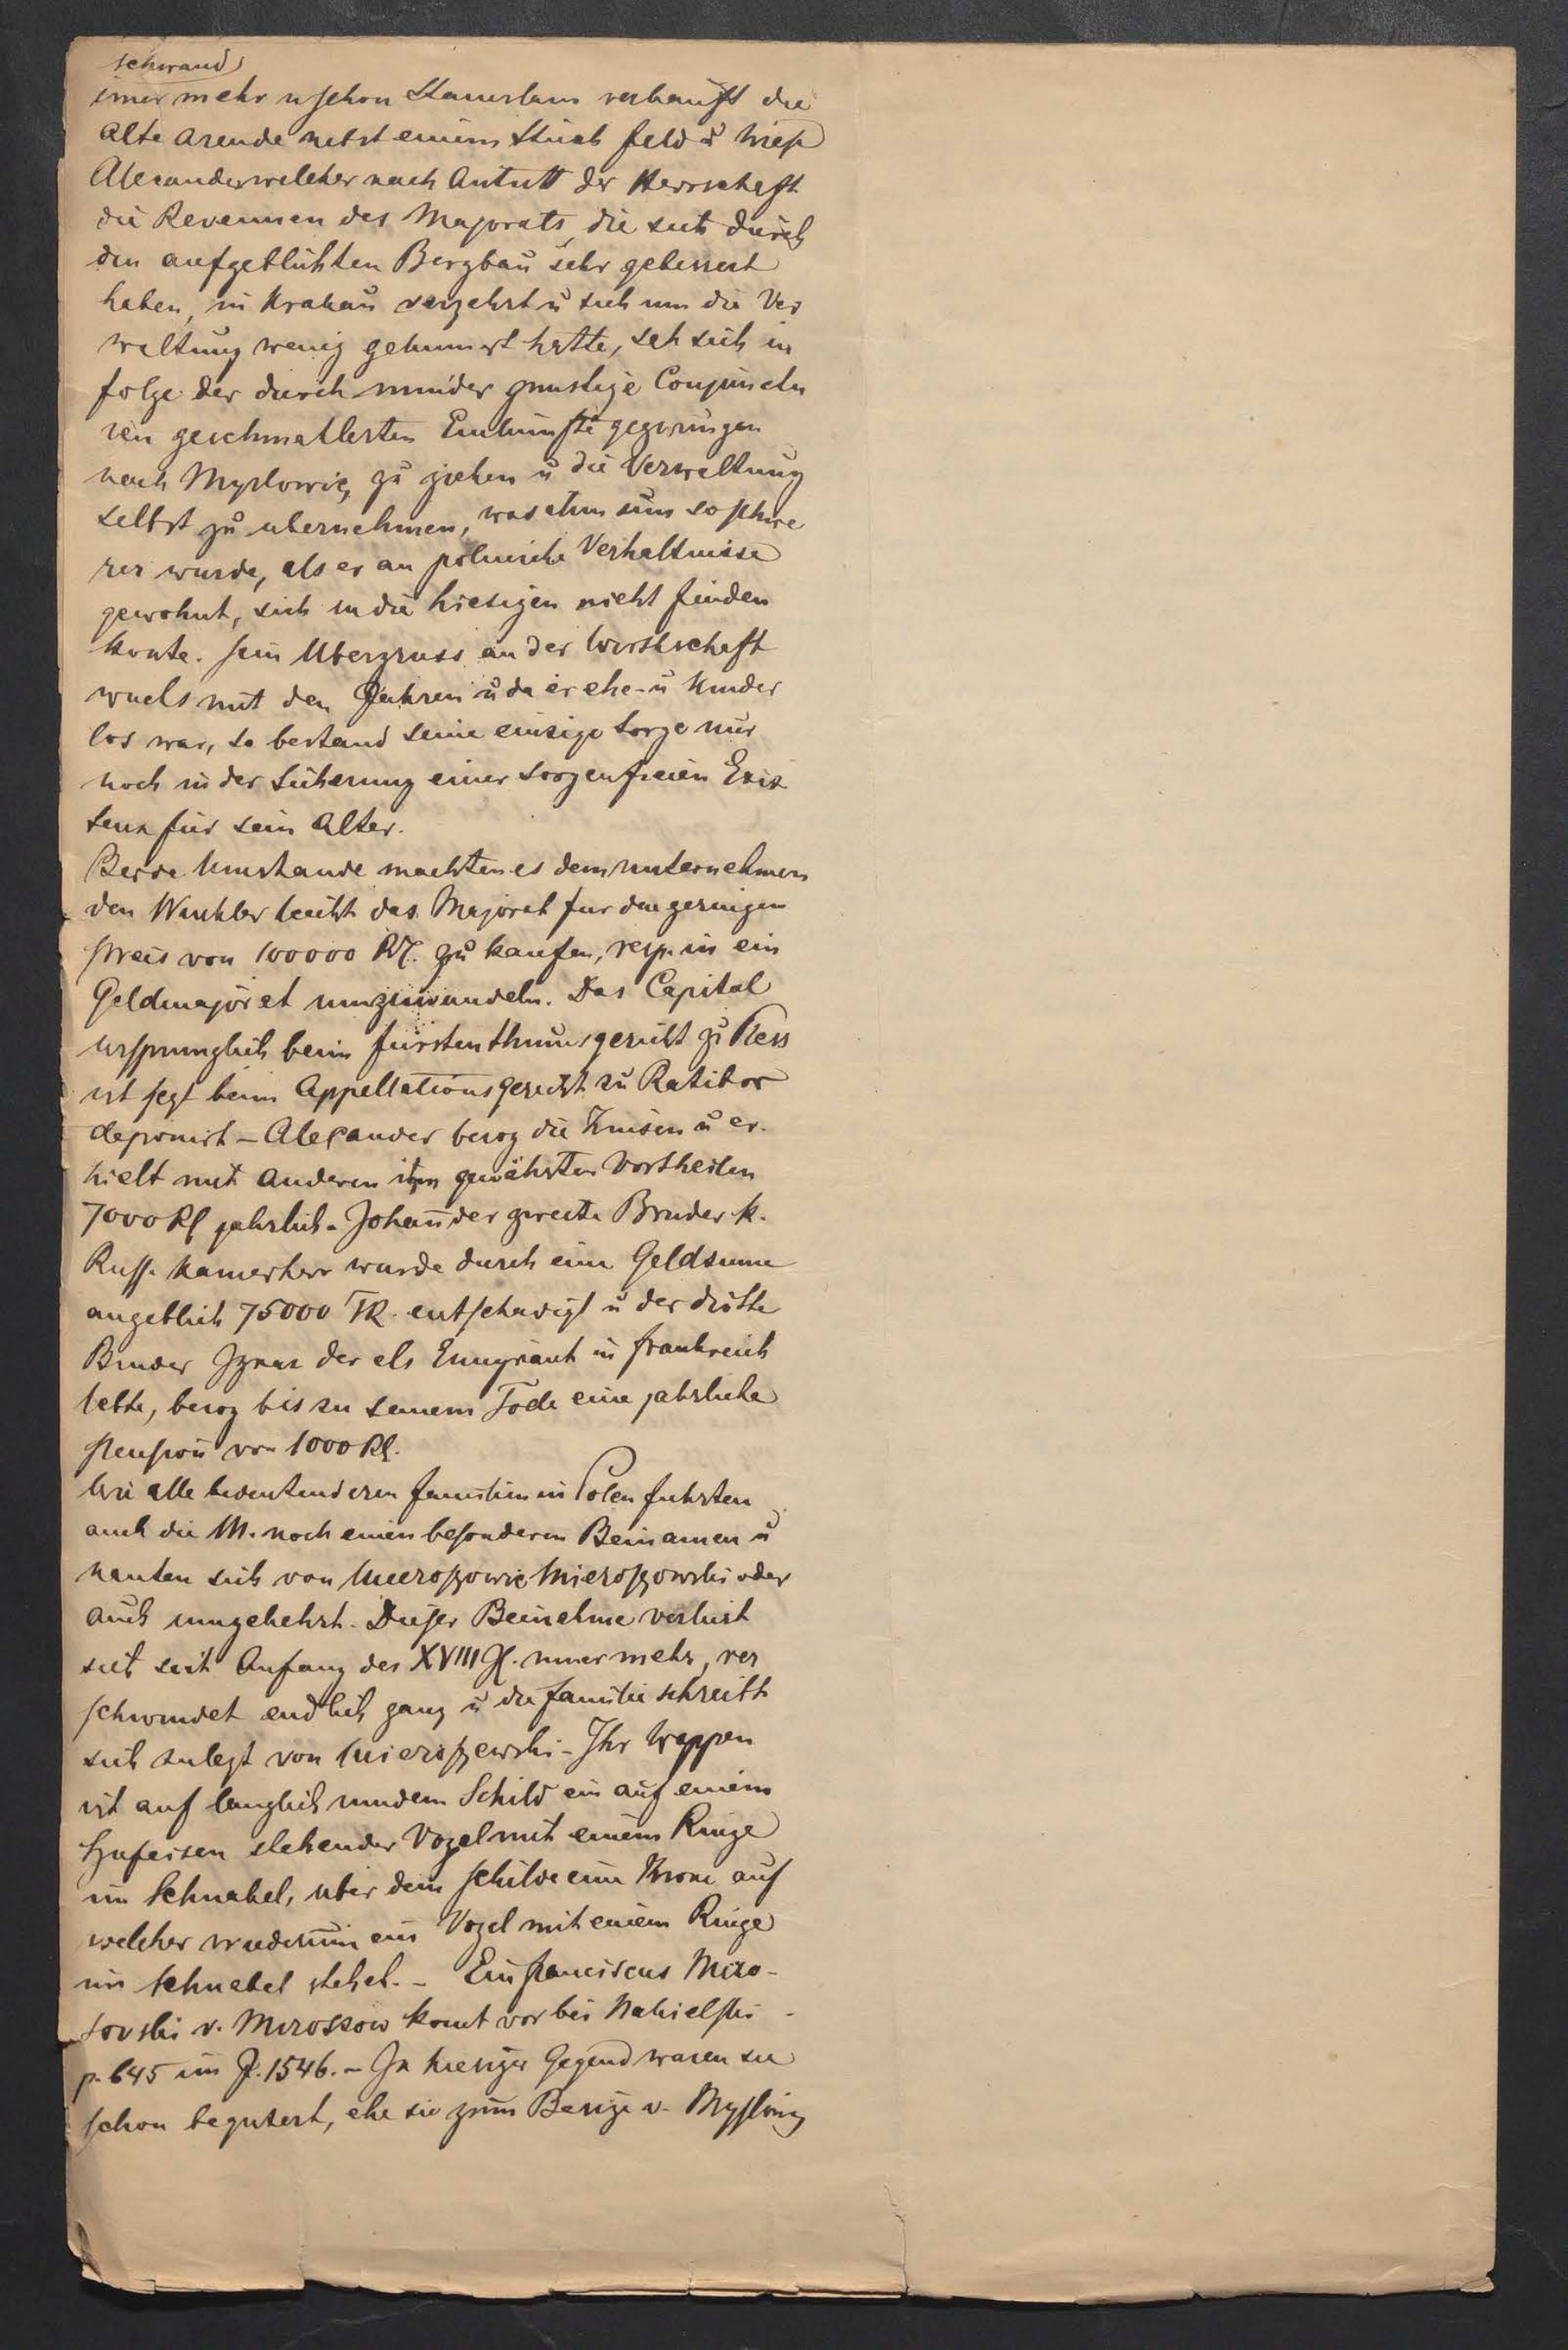 schwand
imer mehr u schon Stanislaus verkauft die
alte Arende nebst einem Stück Feld u Wiese
Alexander welcher nach Antritt der Herrschaft
die Revenuen des Majorats, die sich durch
den aufgeblühten Bergbau sehr gebessert
haben, in Krakau verzehrt u sich um die Ver
waltung wenig gekümmert hatte, sah sich in
folge der durch minder günstige Conjunctu
ren geschmälerten Einkünfte gezwungen
nach Myslowitz zu ziehen u die Verwaltung
selbst zu übernehmen, was ihm um so schwe
rer wurde, als er an polnische Verhältnisse
gewohnt, sich in die hiesigen nicht finden
konte. Sein Überdruss an der Wirthschaft
wuchs mit den Jahren u da er ehe- u kinder
los war, so bestand seine einzige Sorge nur
noch in der Sicherung einer sorgenfreien Exis
tenz für sein Alter.
Beide Umstände machten es dem unternehmen
den Winkler leicht das Majorat für den geringen
Preis von 100000 Rl. zu kaufen, resp. in ein
Geldmajorat umzuwandeln. Das Capital
ursprünglich beim Fürstenthumsgericht zu Pless
ist jezt beim Appellationsgericht zu Ratibor
deponirt – Alexander bezog die Zinsen u er-
hielt mit anderen ihm gewährten Vortheilen
7000 Rl jährlich – Johann der zweite Bruder k.
Russ. Kamerherr wurde durch eine Geldsume
angeblich 75000 TR. entschädigt u der dritte
Bruder Ignaz der als Emigrant in Frankreich
lebte, bezog bis zu seinem Tode eine jährliche
Pension von 1000 Rl.
Wie alle bedeutenderen Familien in Polen führten
auch die M. noch einen besonderen Beinamen u
nanten sich von Mieroszowic Mieroszowski oder
auch umgekehrt. Dieser Beiname verliert
sich seit Anfang des XVIII J. imer mehr, ver
schwindet endlich ganz u die Familie schreibt
sich zulezt von Mieroszewski – Ihr Wappen
ist auf länglich rundem Schild ein auf einem
Hufeisen stehender Vogel mit einem Ringe
im Schnabel, über dem Schilde eine Krone auf
welcher wiederum ein Vogel mit einem Ringe
im Schnabel stehet. – Ein Franciscus Miro-
sovski v. Mirossow komt vor bei
p. 645 im J. 1546. – In hiesiger Gegend waren sie
schon begütert, ehe sie zum Besize v. Mysłowiz